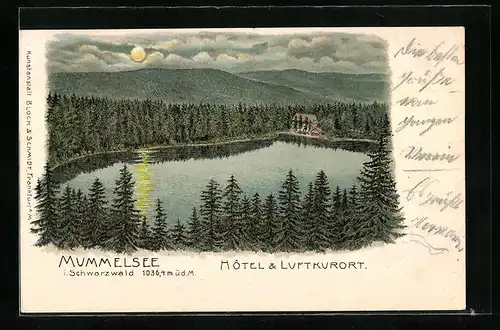 Kunstanstalt BLOCK & SCHMIDT, Frankfurt a/M.
MUMMELSEE
i. Schwarzwald 1036,4 m.ü.d.M.
HÔTEL & LUFTKURORT.
Die besten
Grüße
vom
ganzen
Verein
Hermann